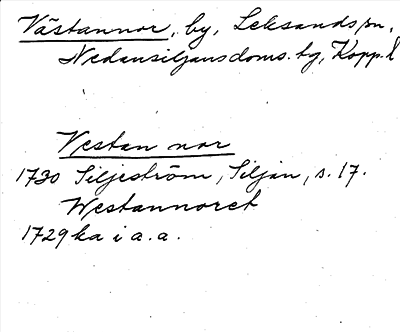 Västannor, by, Leksands sn,
Nedansiljans doms. tg, Kopp. l
Vestan nor
1730 Siljeström, Siljan, s. 17.
Westannoret
1729 ka i a. a.